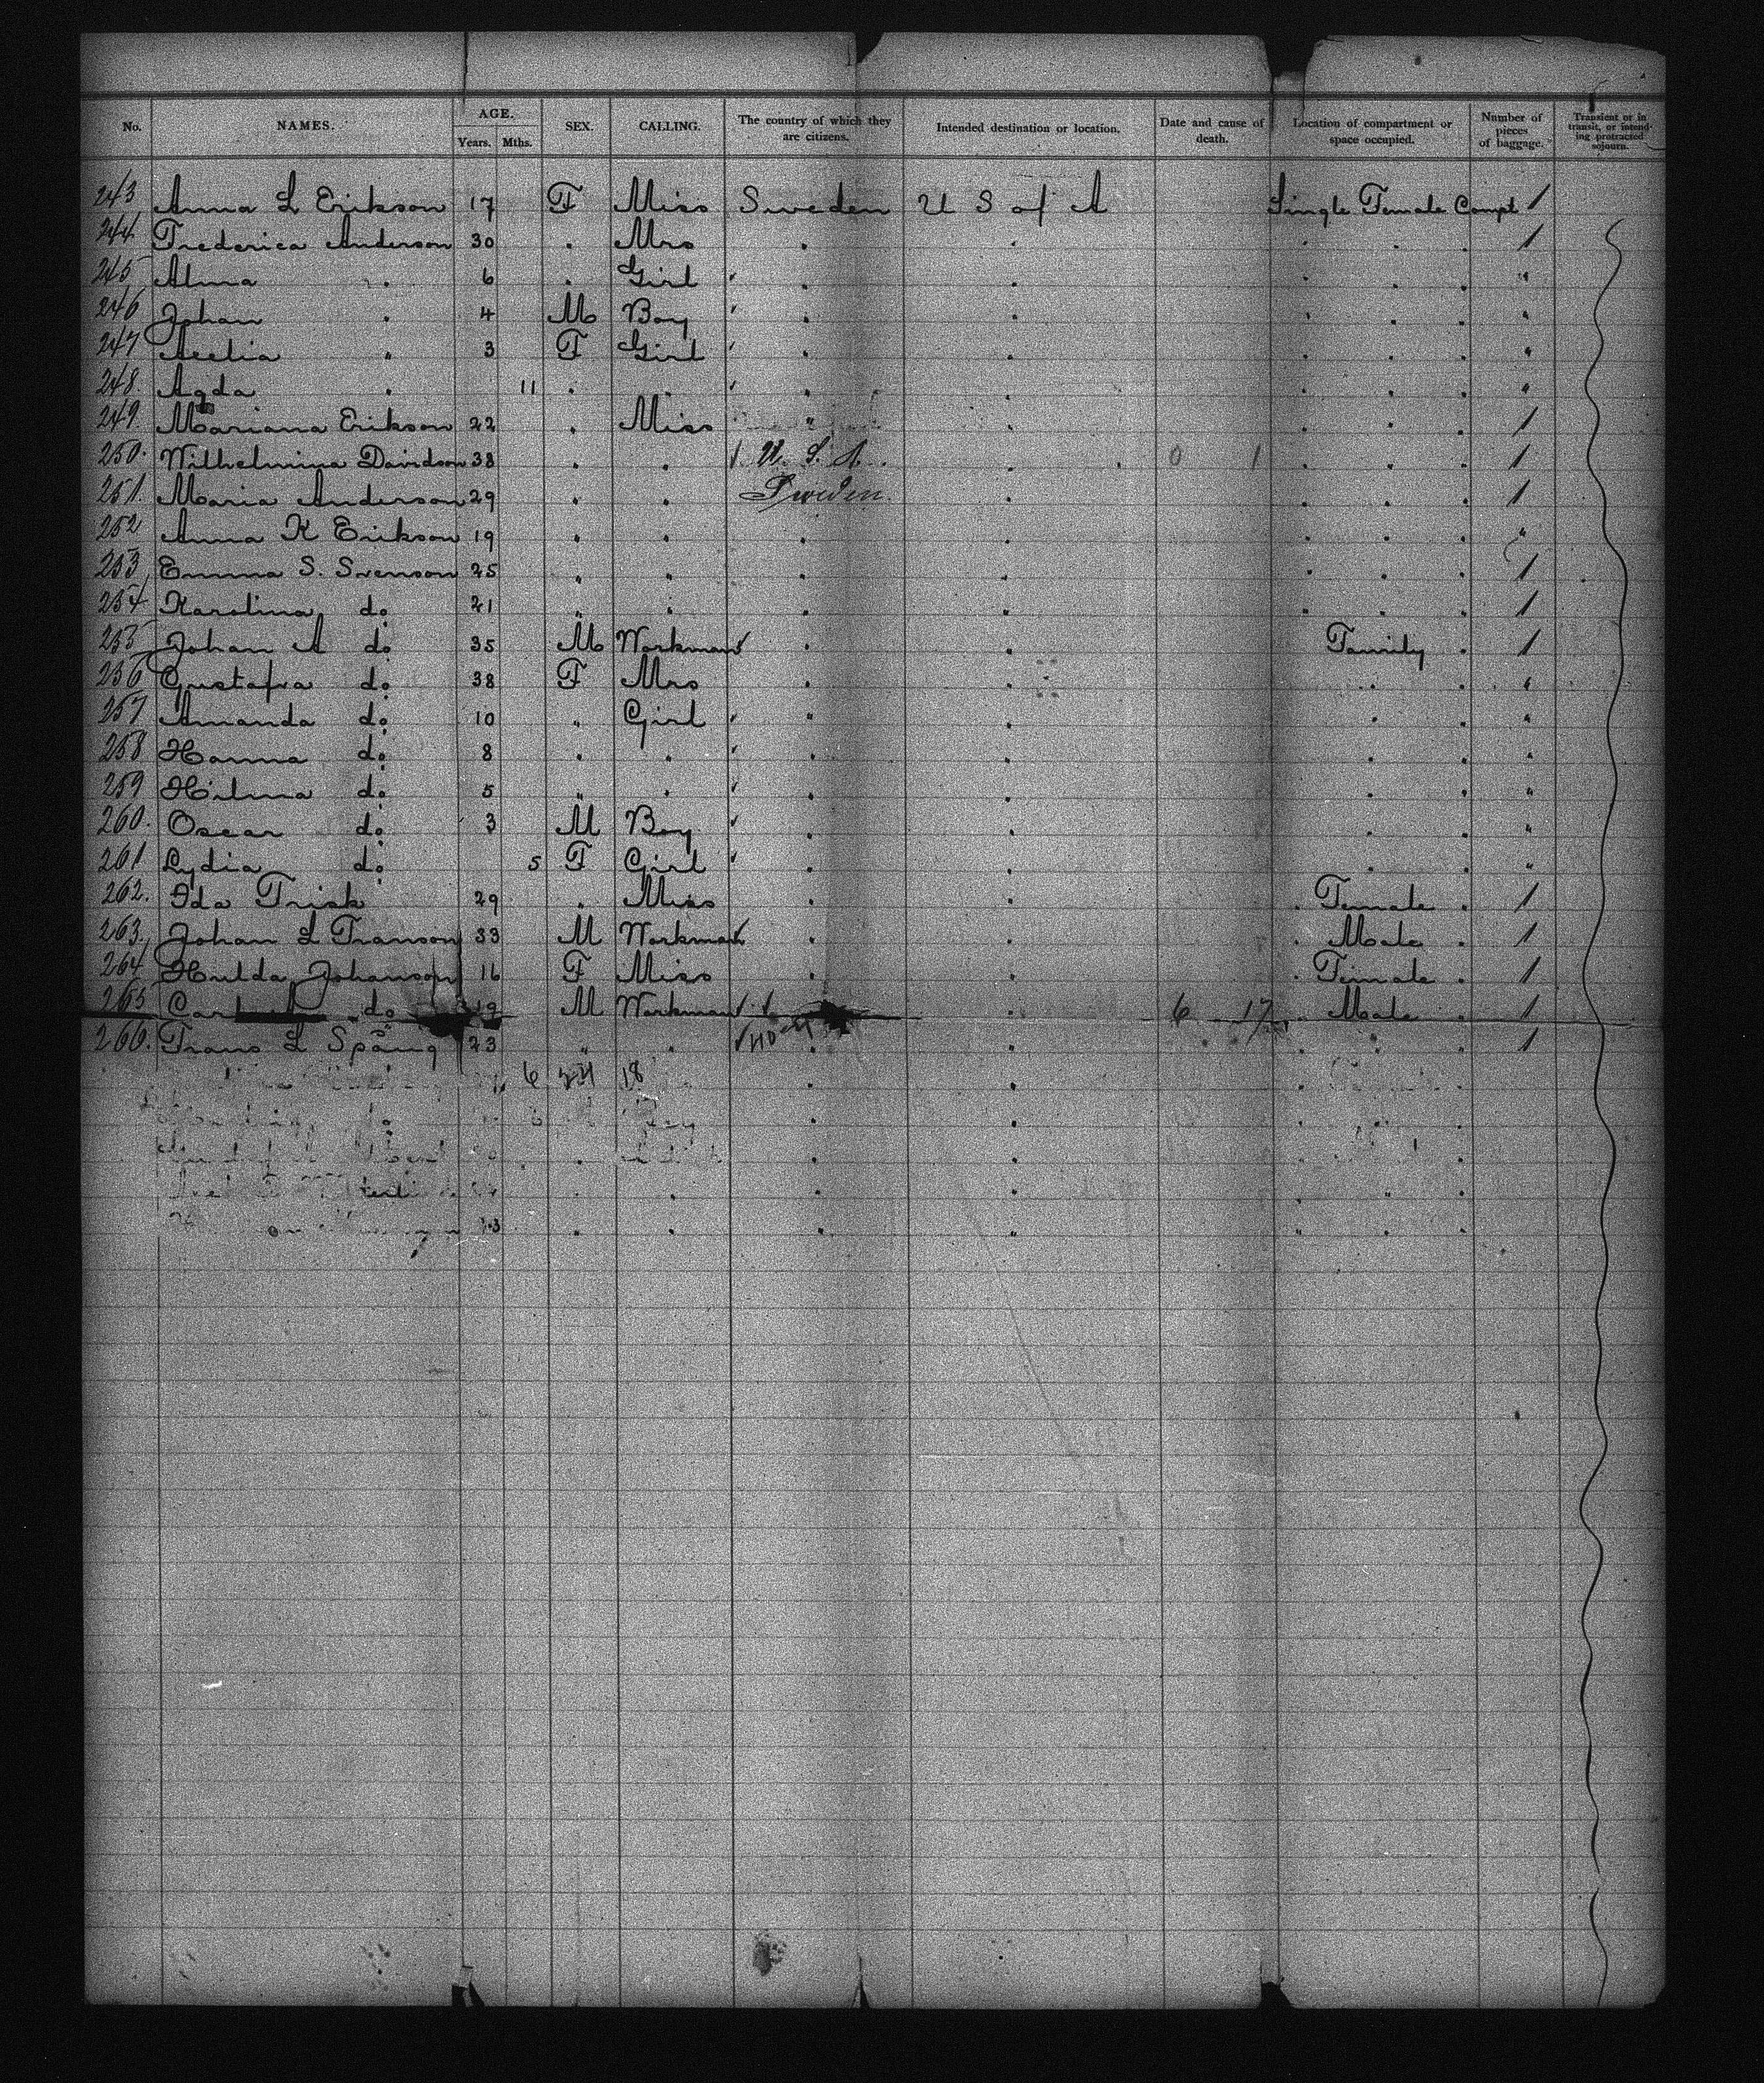 No. NAMES. AGE. Years. Mths. SEX. CALLING. The country of which they are citizens. Intended destination or location. Date and cause of death. Location of compartment or space occupied. Number of pieces of baggage. Transient or in transit, or intending protracted sojourn.
243 Anna L Erikson 17 F Miss Sweden U S of A Single Female Compt 1
244 Frederica Anderson 30 " Mrs " " " " " 1
245 Alma " 6 " Girl " " " " " "
246 Johan " 4 M Boy " " " " " "
247 " 3 F Girl " " " " " "
248. Agda " 11 " " " " " " " "
249. Mariana Erikson 22 " Miss " " " " " 1
250. Wilhelmina Davidson 38 " " U. S. A. " 0 1 " " " 1
251. Maria Anderson 29 " " Sweden " " " " 1
252 Anna K Erikson 19 " " " " " " " "
253 Emma S. Svenson 25 " " " " " " " 1
254 Karolina do 21 " " " " " " " 1
255 Johan A do 35 M Workman " " Family " 1
256 Gustafva do 38 F Mrs " " " " "
257 Amanda do 10 " Girl " " " " "
258 Hanna do 8 " " " " " " "
259 Hilma do 5 " " " " " " "
260. Oscar do 3 M Boy " " " " "
261 Lydia do 5 F Girl " " " " "
262. Ida Frisk 29 " Miss " " " Female " 1
263. Johan L Franson 33 M Workman " " " Male " 1
264 Hulda Johanson 16 F Miss " " " Female " 1
265 do 19 M Workman " 6 17 " Male " 1
266. Frans L Spång 23 " " " " " " " 1
6 18